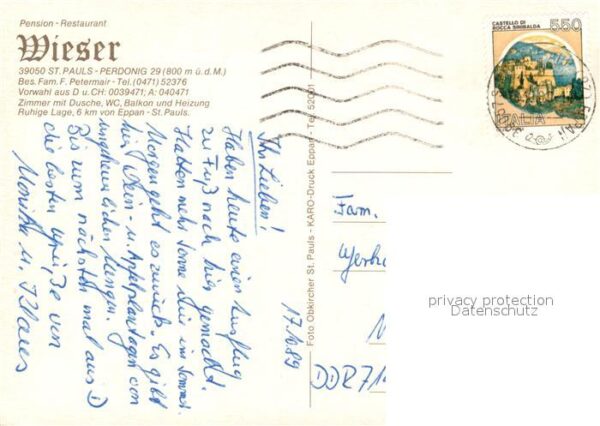 Pension - Restaurant
Wieser
39050 ST. PAULS - PERDONIG 29 (800 m ü. d. M.)
Bes. Fam. F. Petermair - Tel. (0471) 52376
Vorwahl aus D u. CH: 0039471; A: 040471
Zimmer mit Dusche, WC, Balkon und Heizung
Ruhige Lage, 6 km von Eppan - St. Pauls.
CASTELLO DI
ROCCA SINIBALDA
550
ITALIA
EPPAN
17.10.89
Ihr Lieben!
Haben heute einen Ausflug
zu Fuß nach hier gemacht.
Hatten mehr Sonne hier im
Morgen geht es zurück. Es gibt
hier Wein- u. Apfelplantagen von
ungeheuerlichen Mengen.
Bis zum nächsten mal aus D
die besten Grüße von
Monika u. Klaus
Foto Obkircher St. Pauls - KARO-Druck Eppan - Tel. 52001
Fam.
DDR 71
privacy protection
Datenschutz